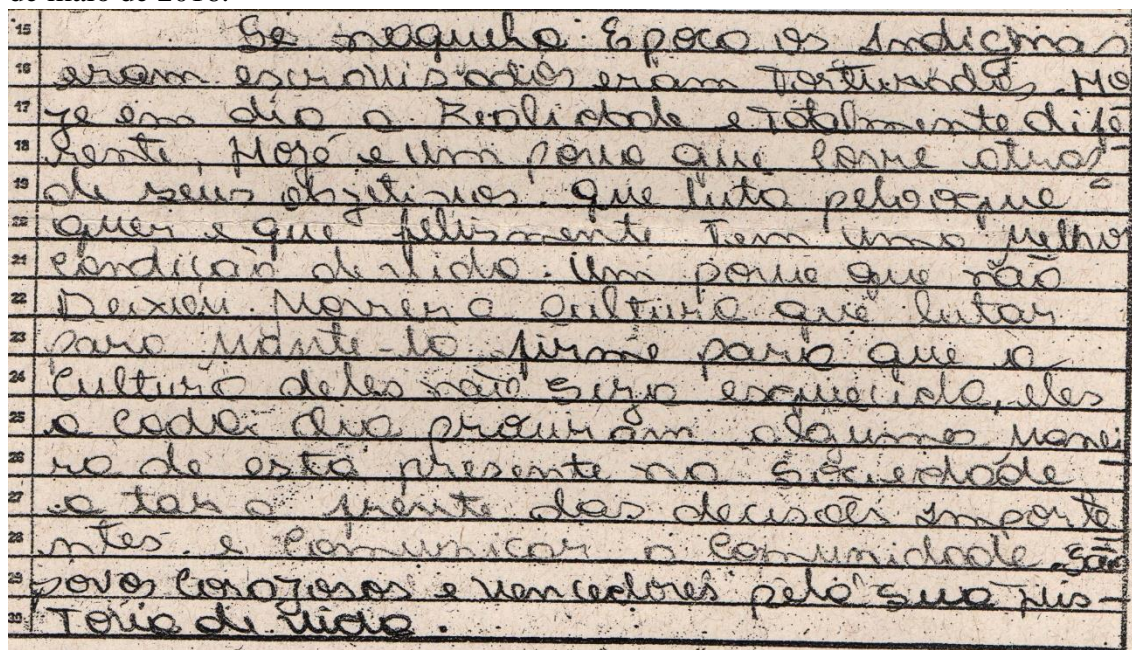 de maio de 2016.
15 Se naquela Epoca os Indicinas
16 eram escravisados eram Torturados. Ho
17 je em dia a Realidade e Totalmente dife
18 rente, Hoje e um povo que corre atras
19 de seus objetivos. que luta pelo o que
20 quer e que felismente Tem uma melhor
21 condicão de vida. Um povo que não
22 Deixou Morrer a cultura que lutar
23 para Mante-la firme para que a
24 cultura deles não seija esquecida, eles
25 a cada dia procuram alguma Manei
26 ra de esta presente na Sociedade
27 a tar a frente das decisões importa
28 ntes. e comunicar a comunidade São
29 povos corajosos e vencedores pela sua His-
30 Toria de vida.